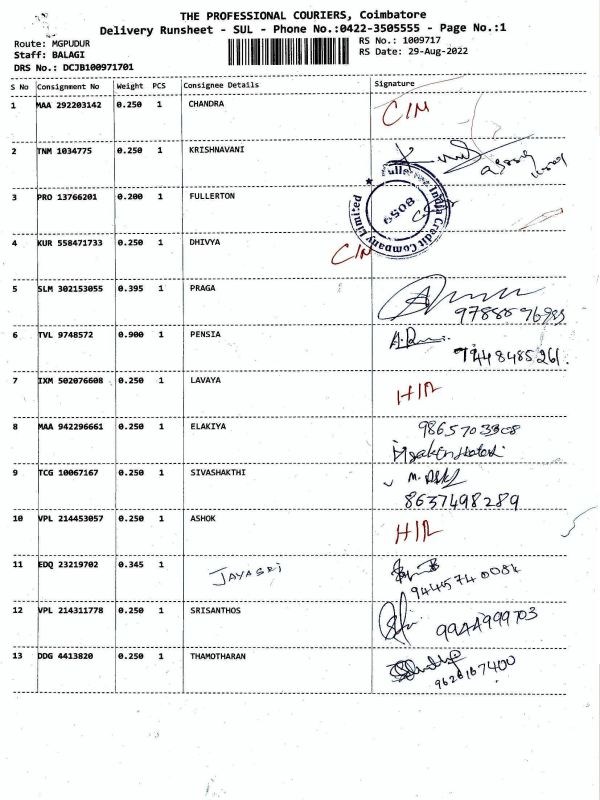 THE PROFESSIONAL COURIERS, Coimbatore
Delivery Runsheet - SUL - Phone No.:0422-3505555 - Page No.:1
Route: MGPUDUR
Staff: BALAGI
DRS No.: DCJB100971701
RS No.: 1009717
RS Date: 29-Aug-2022
S No Consignment No Weight PCS Consignee Details Signature
1 MAA 292203142 0.250 1 CHANDRA
2 TNM 1034775 0.250 1 KRISHNAVANI
3 PRO 13766201 0.200 1 FULLERTON
Fullerton India Credit Company Limited
8059
4 KUR 558471733 0.250 1 DHIVYA
5 SLM 302153055 0.395 1 PRAGA
6 TVL 9748572 0.900 1 PENSIA
94448485261.
7 IXM 502076608 0.250 1 LAVAYA
8 MAA 942296661 0.250 1 ELAKIYA
9 TCG 10067167 0.250 1 SIVASHAKTHI
8637498289
10 VPL 214453057 0.250 1 ASHOK
11 EDQ 23219702 0.345 1 JAYASRI
9445740084
12 VPL 214311778 0.250 1 SRISANTHOS
9944999703
13 DDG 4413820 0.250 1 THAMOTHARAN
9626167400